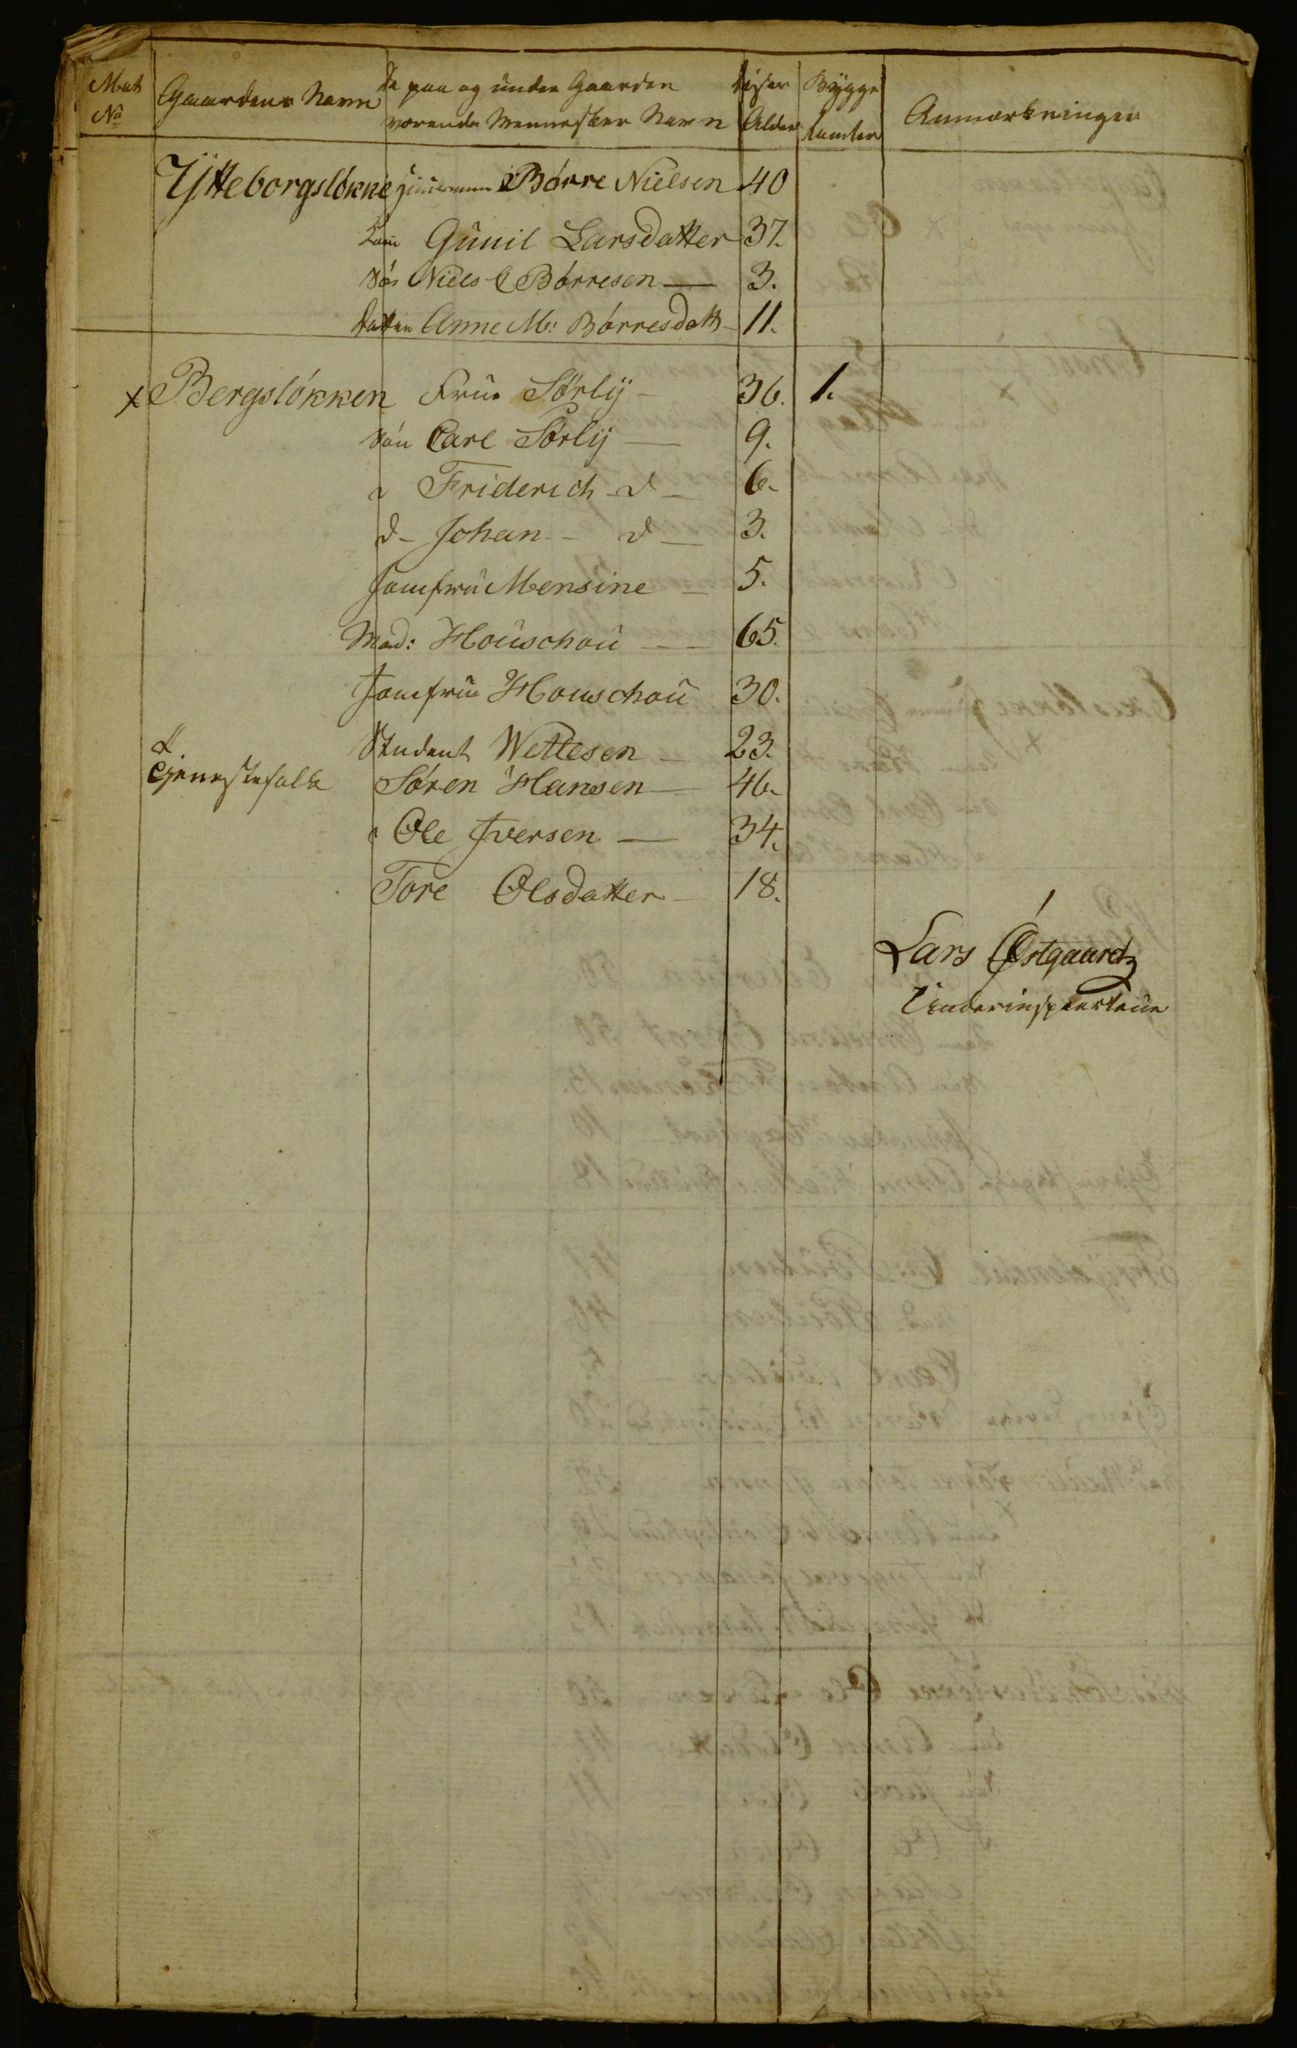 Mat No | Gaardens Navn | De paa og under Gaarden værende Menneskers Navn | disses Alder | Bygge tomter | Anmærkninger
Ytteborgsløkke Børre Nielsen 40
Gunil Larsdatter 37.
Søn Niels Børresen 3.
datter Anne M: Børresdatt 11.
x Bergsløkken Frue Sørly 36. 1.
Søn Carl Sørly 9.
Friderich d 6.
d Johan d 3.
Jomfru Mensine 5.
Mad: Houschou 65.
Jomfrue Houschou 30.
Student Wettesen 23.
Tjenestefolk Søren Hansen 46.
Ole Iversen 34.
Tore Olsdatter 18.
Lars Østgaard
Underinspecteur